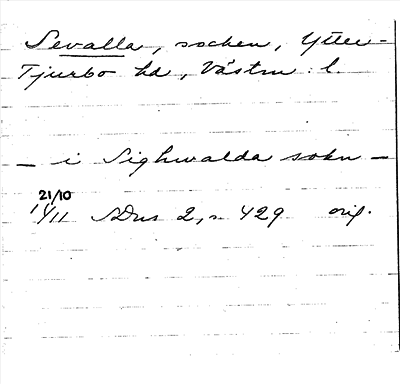 Sevalla, socken, Ytter-
Tjurbo hd, Västm. l.
— i Sighwalda sokn —
21/10
1/11 SDns 2, s 429 orig.